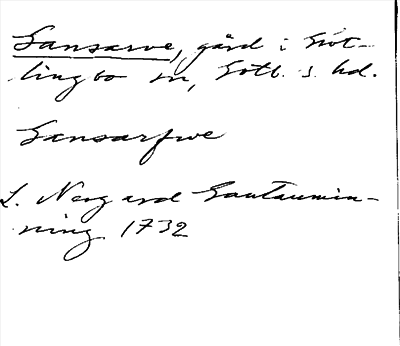 Sansarve, gård i Gröt-
lingbo sn, Gotl. s. hd.
Sansarfwe
L. Nergard Gautaumin-
ning 1732